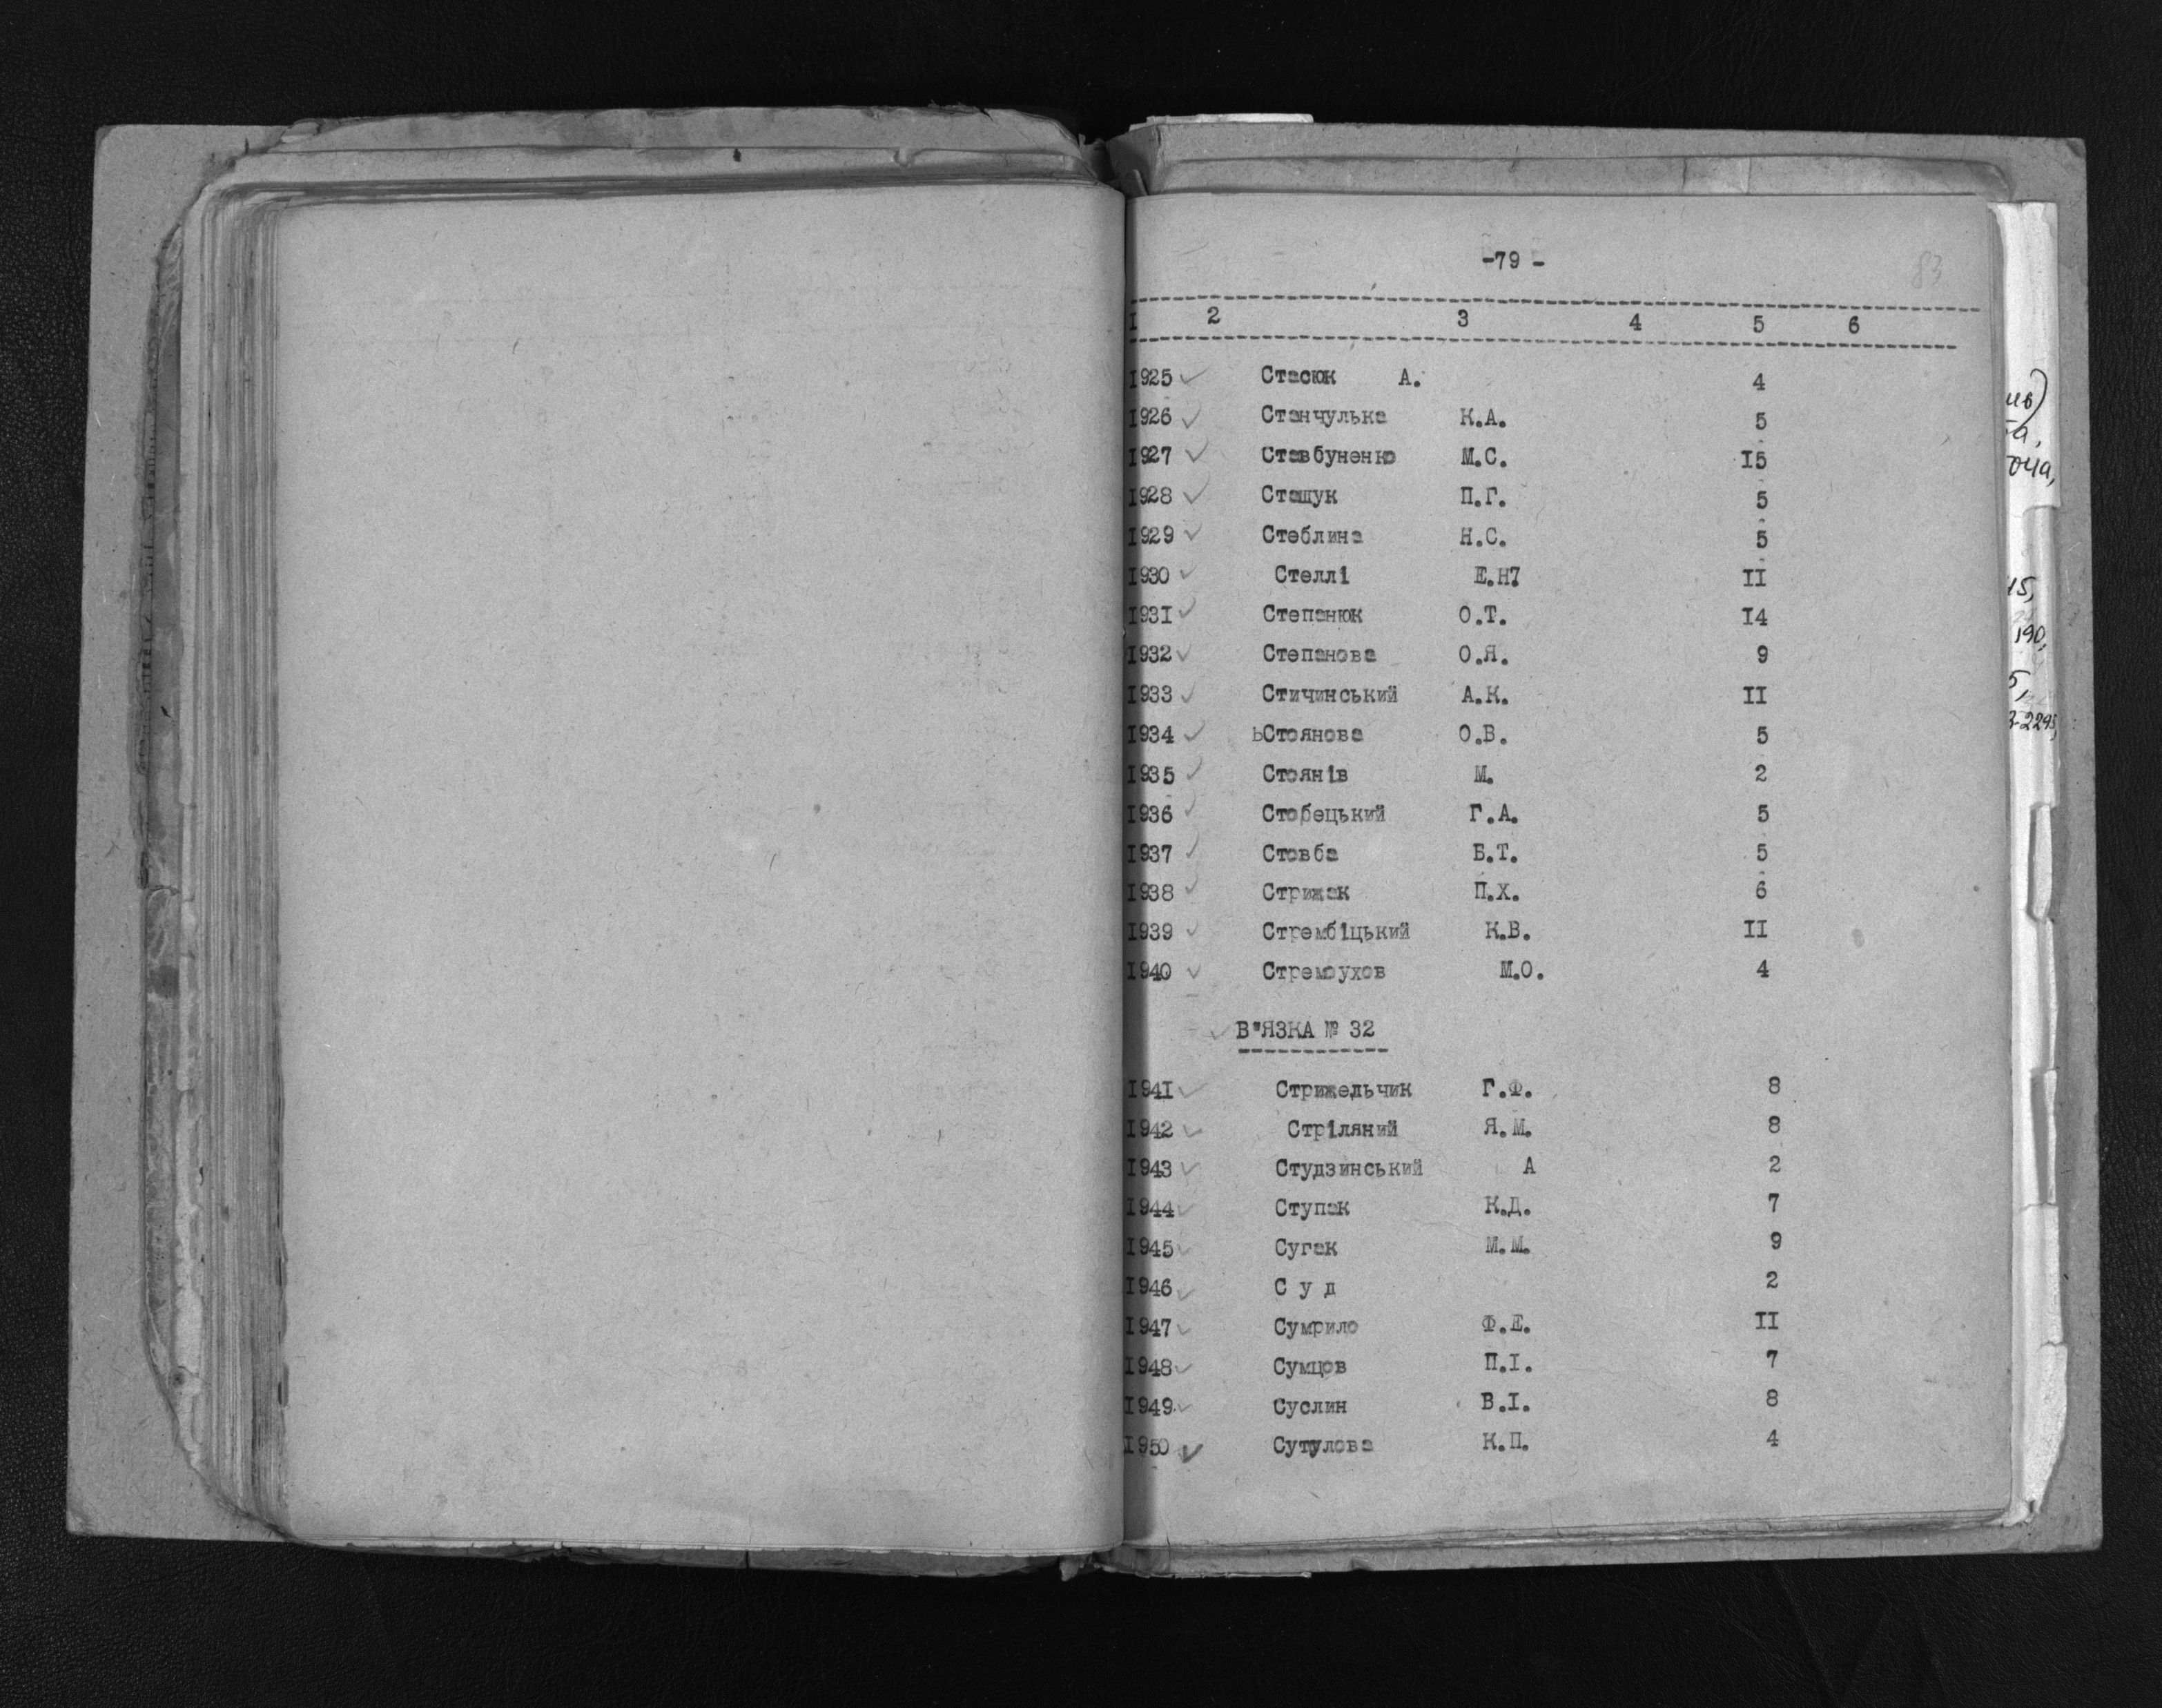 -79 -
83
I 2 3 4 5 6
I925 ✓ Стасюк А. 4
I926 ✓ Станчулька К.А. 5
I927 ✓ Ставбуненко М.С. I5
I928 ✓ Стащук П.Г. 5
I929 ✓ Стеблина Н.С. 5
I930 ✓ Стеллі Е.Н7 II
I93I ✓ Степанюк О.Т. I4
I932 ✓ Степанова О.Я. 9
I933 ✓ Стичинський А.К. II
I934 ✓ ьСтоянова О.В. 5
I935 ✓ Стоянів М. 2
I936 ✓ Стобецький Г.А. 5
I937 ✓ Стовба Б.Т. 5
I938 ✓ Стрижак П.Х. 6
I939 ✓ Стрембіцький К.В. II
I940 ✓ Стремоухов М.О. 4
✓ В"ЯЗКА № 32
I94I ✓ Стрижельчик Г.Ф. 8
I942 ✓ Стріляний Я.М. 8
I943 ✓ Студзинський А 2
I944 ✓ Ступак К.Д. 7
I945 ✓ Сугак М.М. 9
I946 ✓ С у д 2
I947 ✓ Сумрило Ф.Е. II
I948 ✓ Сумцов П.І. 7
I949 ✓ Суслин В.І. 8
I950 ✓ Сутулова К.П. 4
190,